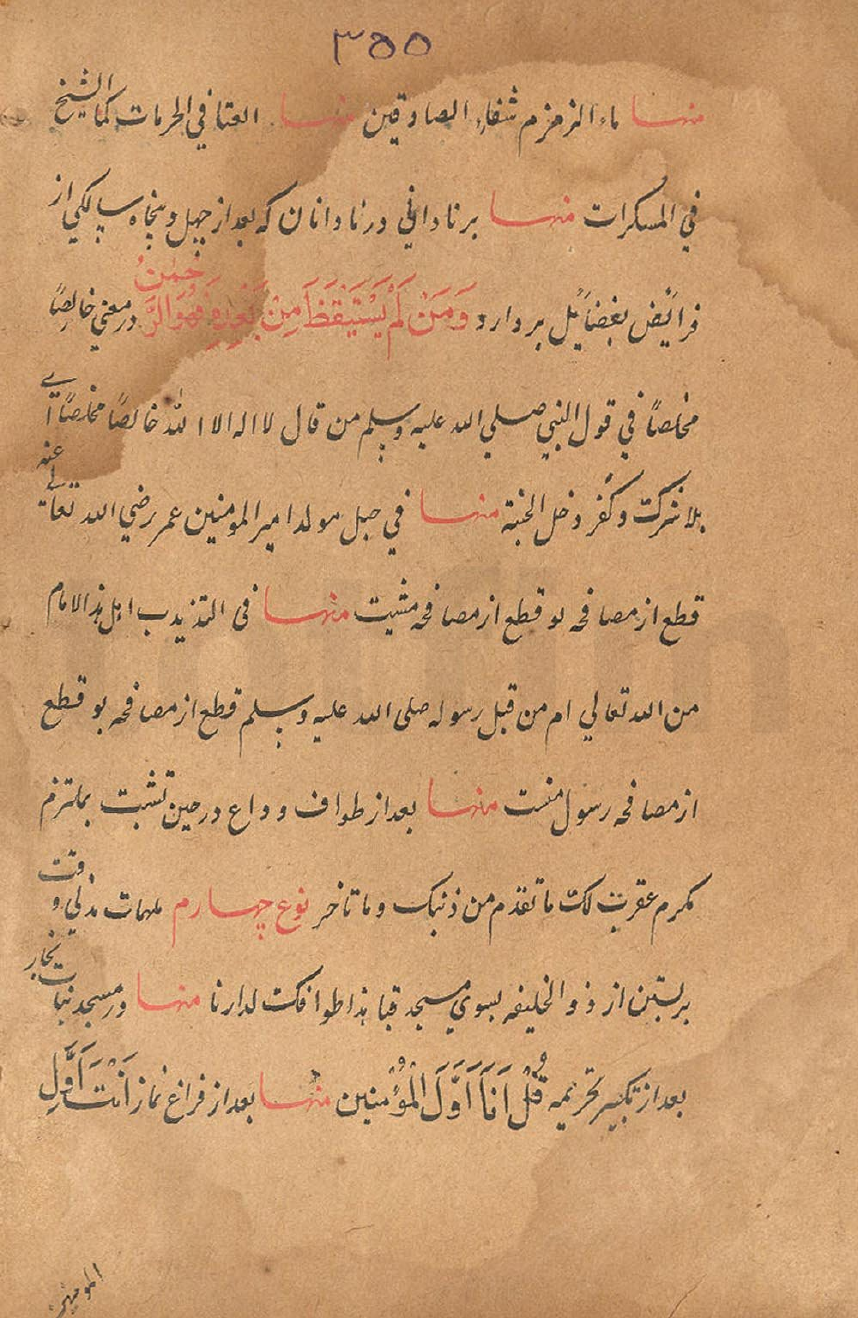 ٣٥٥
منها ماء الزمزم شفاء الصادقین منها العتا في الحرمات كما الشيخ
في المسكرات منها بر ناداني در نادانان كه بعد از چهل و پنجاه سالكي از
فرائض بفضائل بر دارد وَمَنْ لَمْ يَسْتَيْقِظْ مِنْ فهُوَ الرَّحْمٰنُ در معني خالصًا
مخلصًا في قول النبي صلي الله عليه وسلم من قال لا اله الا الله خالصًا مخلصًا اے
بلا شرك و كفر دخل الجنة منها في جبل مولد امير المومنين عمر رضي الله تعالے عنه
قطع از مصافحه بو قطع از مصافحه مشيت منها في اهل هذا لامام
من الله تعالي ام من قبل رسوله صلى الله عليه وسلم قطع از مصافحه بو قطع
از مصافحه رسول منست منها بعد از طواف وداع در حين تشبت بملتزم
مكرم لك ما تقدم من ذنبك وما تاخر نوع چهارم ملهمات مدني وقت
بر بستن از ذو الحليفه بسوي مسجد قبا هذا طوافك لدارنا منها در مسجد
بعد از تكبير تحريمه قُلْ اَنَا اَوَّلَ الْمُؤْمنين منها بعد از فراغ نماز اَنْتَ اَوَّلِ
المومنين